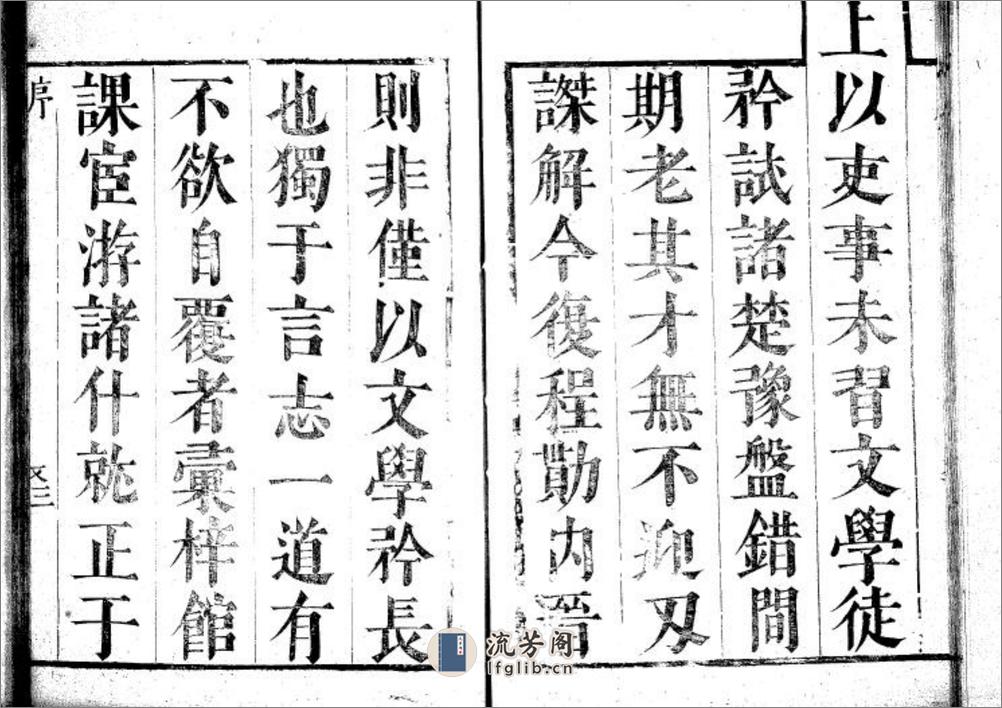 上以吏事未習文學徒
矜試諸楚豫盤錯間
期老其才無不迎刃
謋解今復程勛内晉
則非僅以文學矜長
也獨于言志一道有
不欲自覆者彙梓館
課宦游諸什就正于
序
流芳阁
lfglib.cn